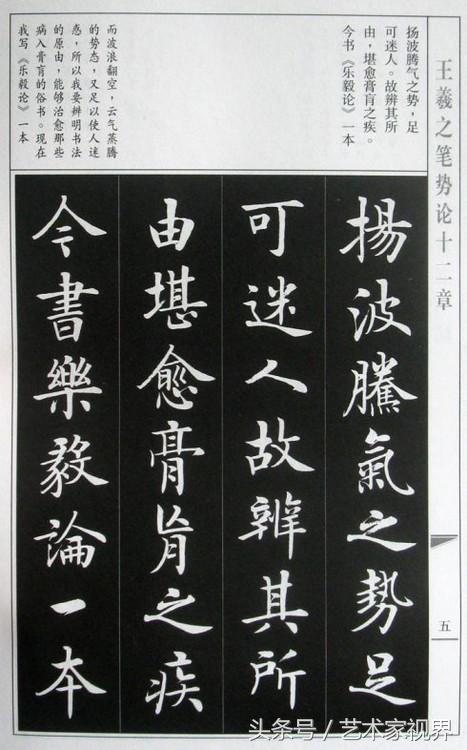 王羲之笔势论十二章
五
扬波腾气之势，足
可迷人。故辨其所
由，堪愈膏肓之疾。
今书《乐毅论》一本
而波浪翻空，云气蒸腾
的势态，又足以使人迷
惑，所以我要辨明书法
的原由，能够治愈那些
病入膏肓的俗书。现在
我写《乐毅论》一本
揚波騰氣之勢足
可迷人故辨其所
由堪愈膏肓之疾
今書樂毅論一本
头条号／艺术家视界